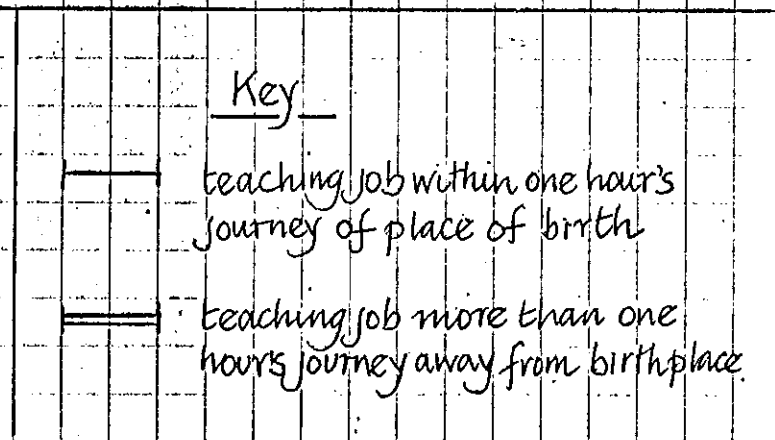 Key
teaching job within one hour's
journey of place of birth
teaching job more than one
hour's journey away from birthplace